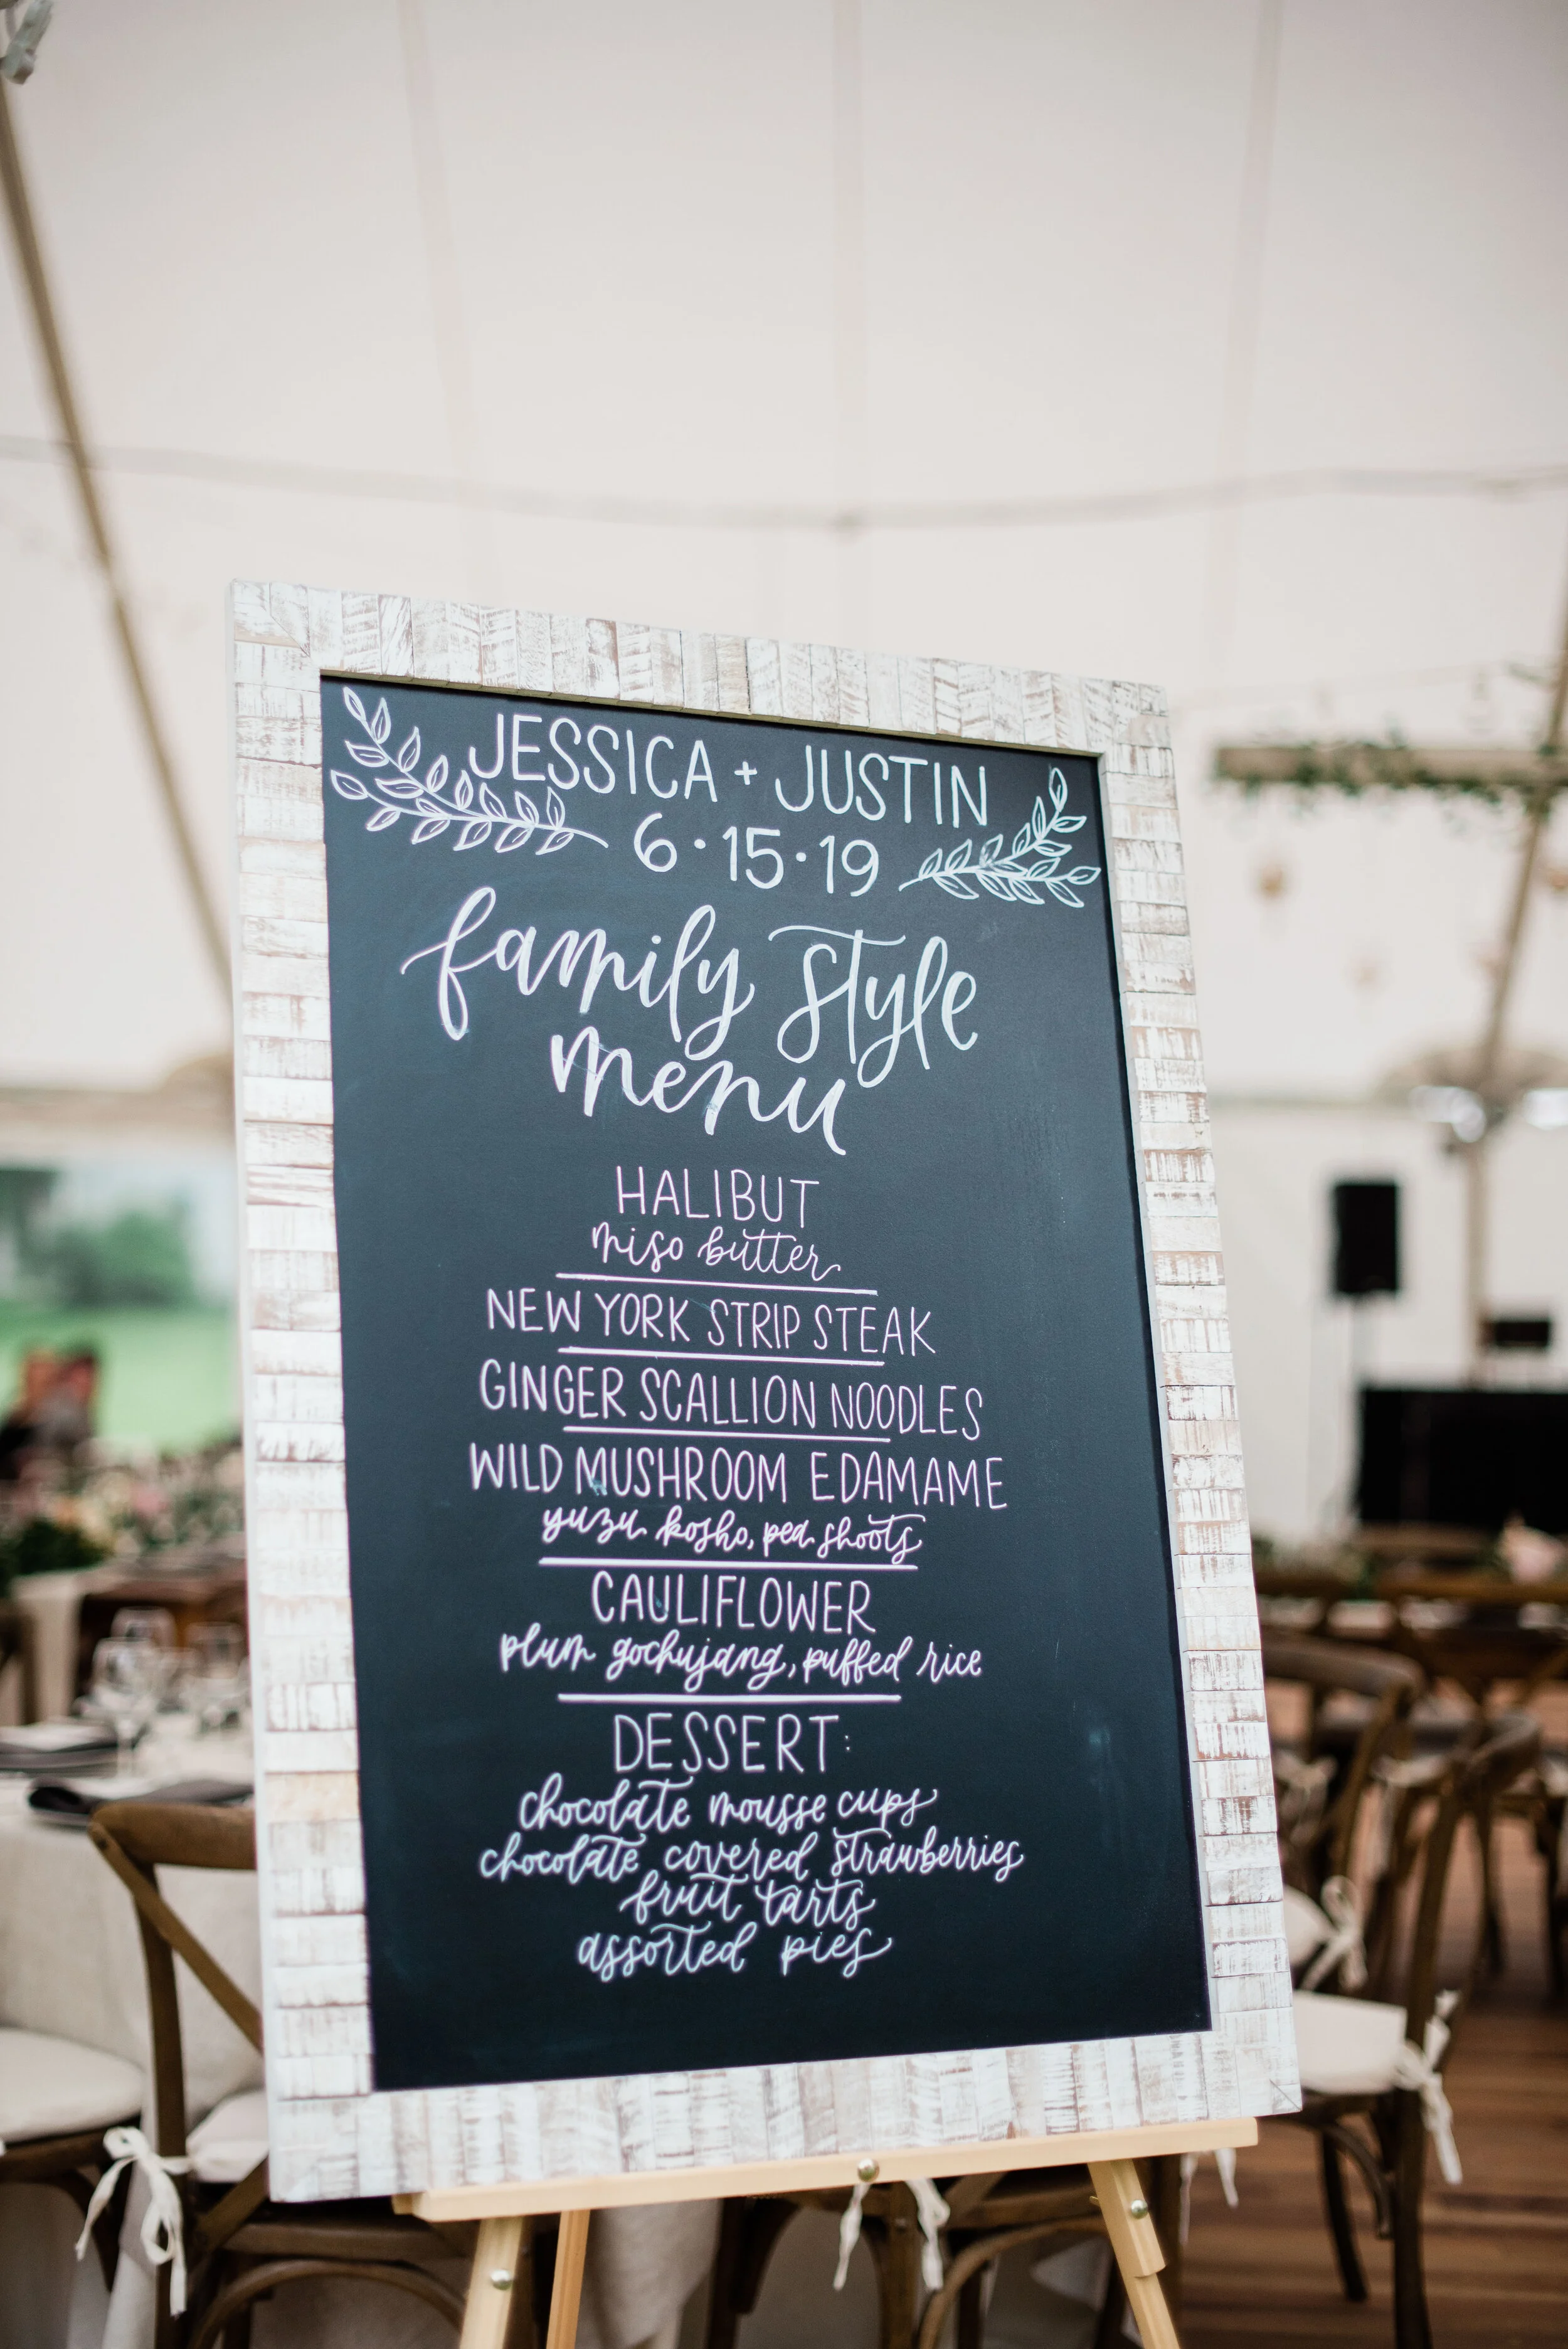 JESSICA + JUSTIN
6·15·19
family style
menu
HALIBUT
miso butter
NEW YORK STRIP STEAK
GINGER SCALLION NOODLES
WILD MUSHROOM EDAMAME
yuzu kosho, pea shoots
CAULIFLOWER
plum gochujang, puffed rice
DESSERT:
chocolate mousse cups
chocolate covered strawberries
fruit tarts
assorted pies